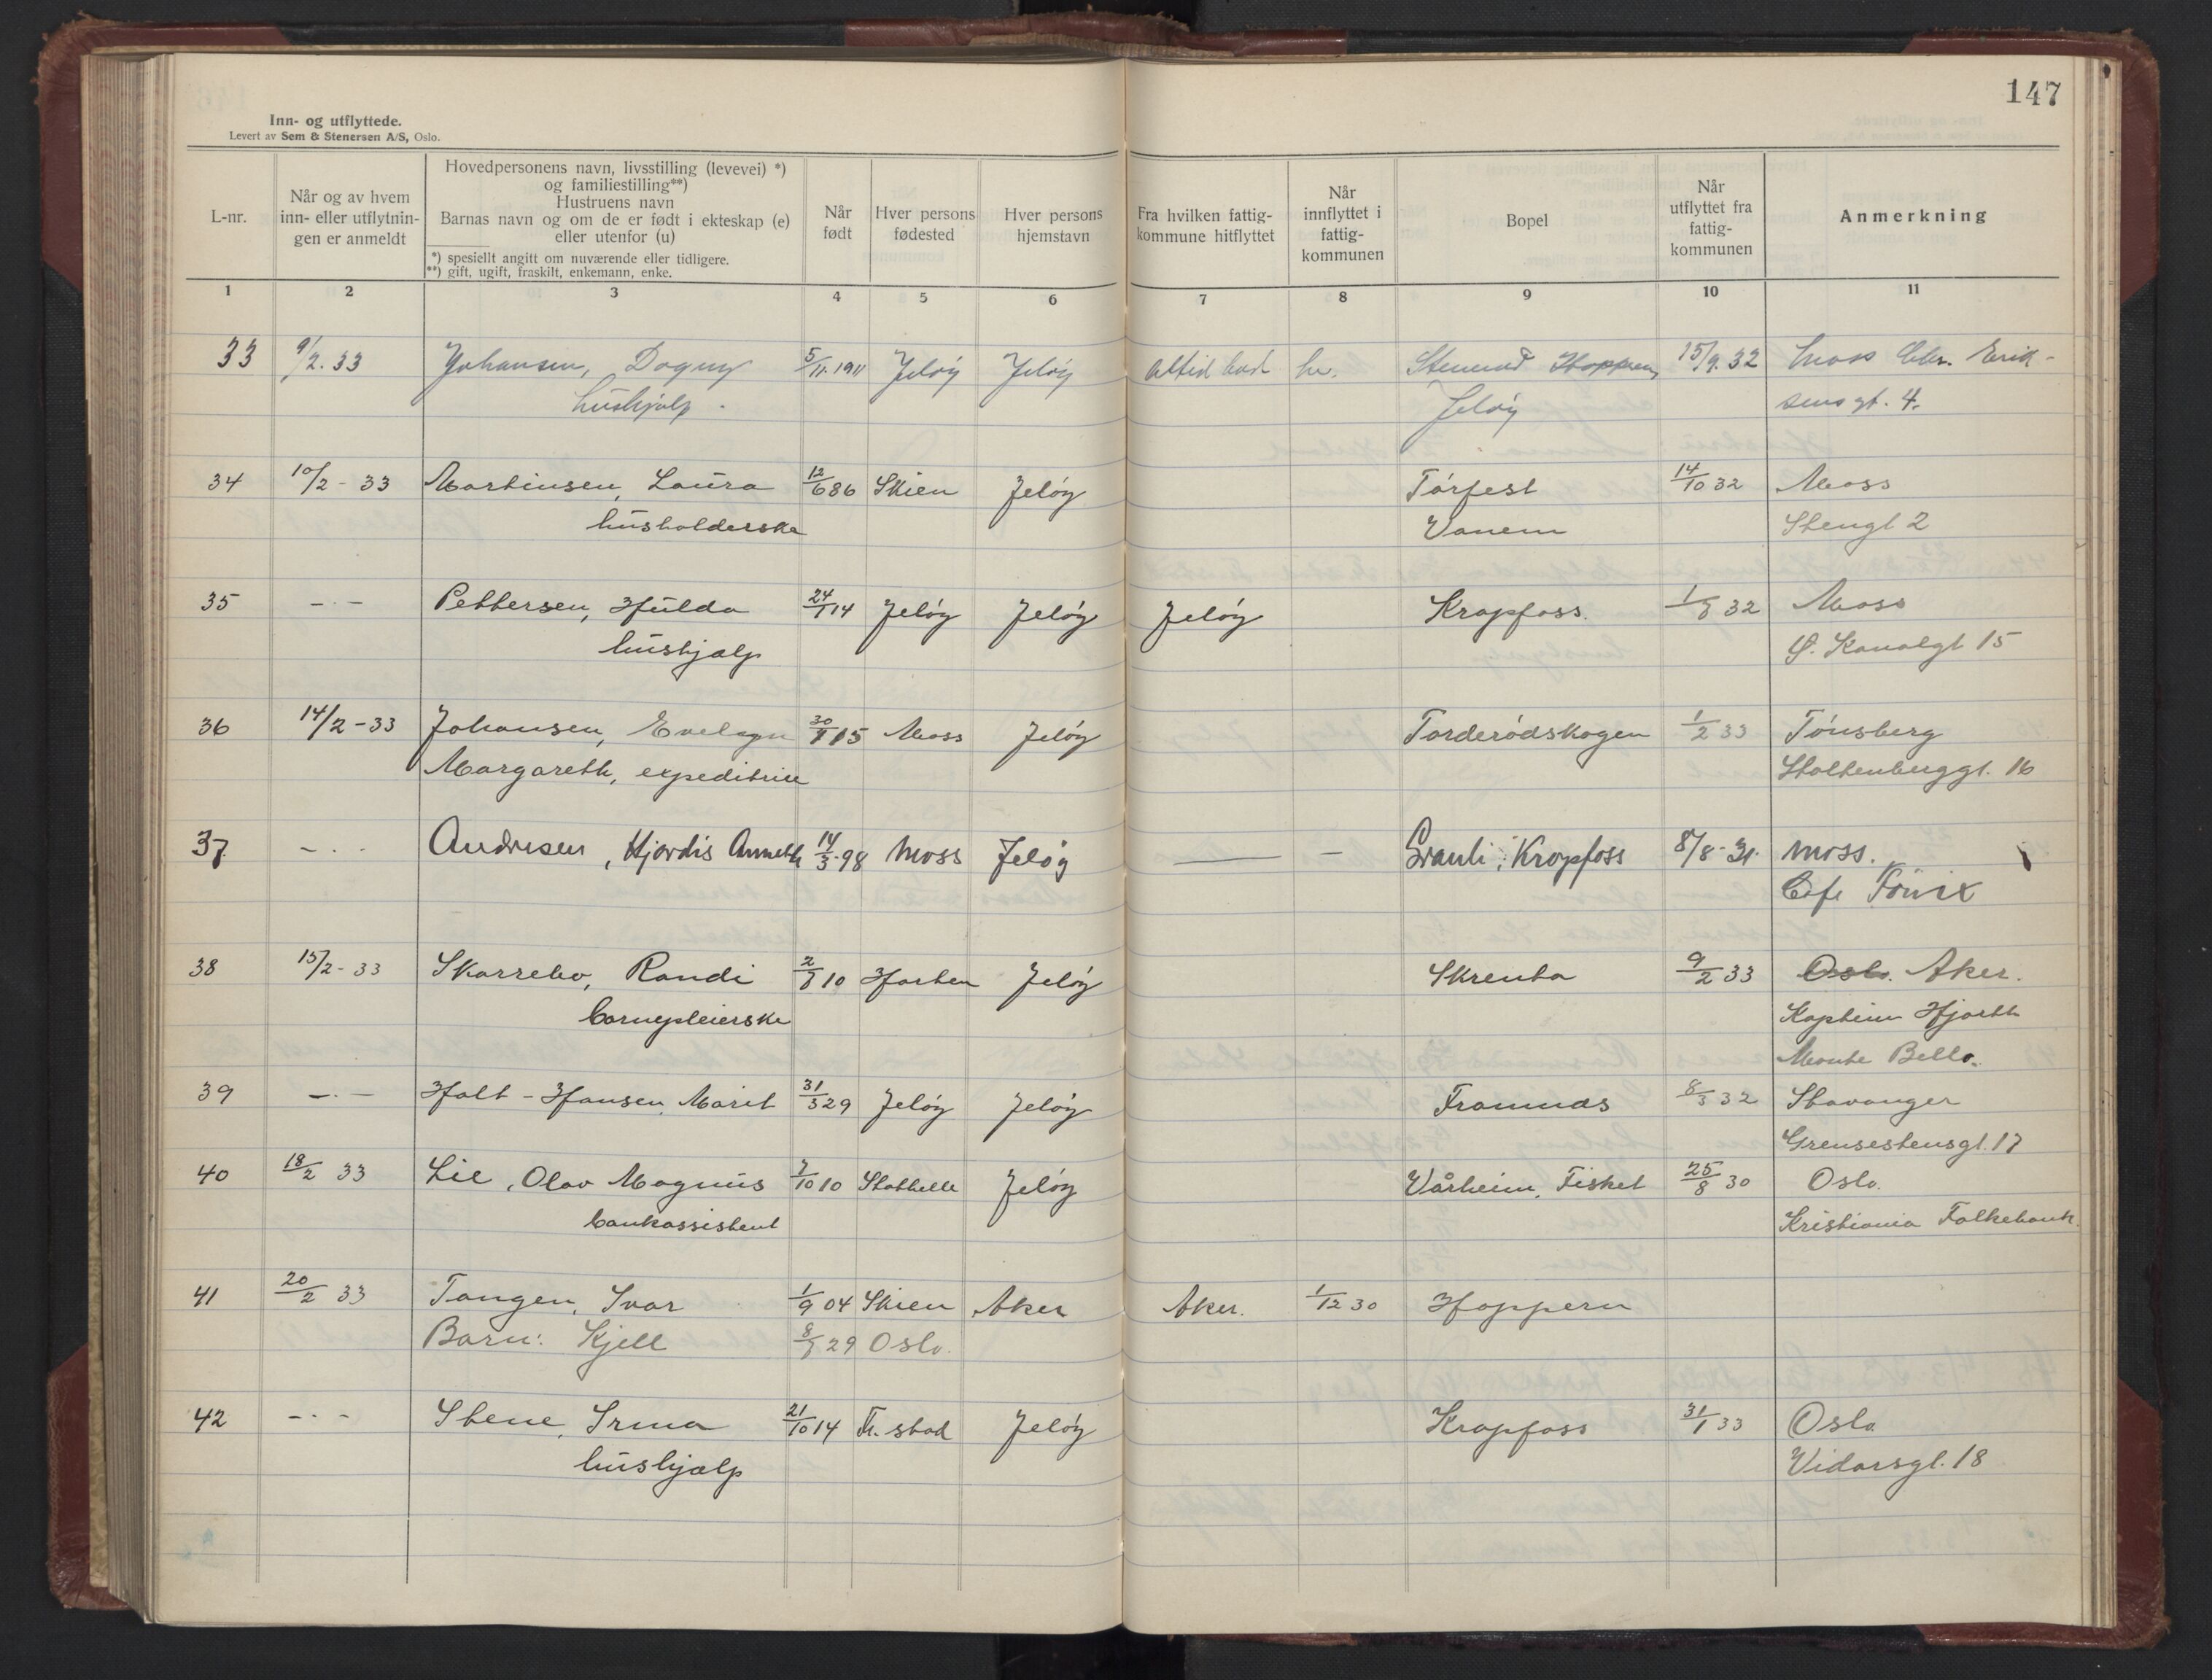 147
Inn- og utflyttede.
Levert av Sem & Stenersen A/S, Oslo.
L-nr.
Når og av hvem
inn- eller utflytnin-
gen er anmeldt
Hovedpersonens navn, livsstilling (levevei) *)
og familiestilling**)
Hustruens navn
Barnas navn og om de er født i ekteskap (e)
eller utenfor (u)
*) spesiellt angitt om nuværende eller tidligere.
**) gift, ugift, fraskilt, enkemann, enke.
Når
født
Hver persons
fødested
Hver persons
hjemstavn
Fra hvilken fattig-
kommune hitflyttet
Når
innflyttet i
fattig-
kommunen
Bopel
Når
utflyttet fra
fattig-
kommunen
Anmerkning
1 2 3 4 5 6 7 8 9 10 11
33 9/2. 33 Johansen, Dagny 5/11. 1911 Jeløy Jeløy altid bod her. Stenrud Hoppern 15/9. 32 Moss Chr. Erik-
hushjelp. Jeløy sens gt. 4.
34 10/2 - 33 Martinsen, Laura 12/6 86 Skien Jeløy Tørfest 14/10 32 Moss
husholderske Vanem Stengt 2
35 - . - Pettersen, Hulda 24/1 14 Jeløy Jeløy Jeløy Krapfoss. 1/8 32 Moss
hushjælp Ø. Kanalgt 15
36 14/2 - 33 Johansen, Evelyn 30/1 15 Moss Jeløy Torderødskogen 1/2 33 Tønsberg
Margareth, expeditrise Stoltenberggt. 16
37. - . - Andresen, Hjørdis Anneth 14/3 - 98 Moss Jeløy — — Granli, Krapfoss 8/8 - 31. Moss.
Cafe Fønix
38 15/2 - 33 Skarrebo, Randi 2/8 10 Horten Jeløy Skrenta 9/2 33 Oslo. Aker.
barnepleierske Kaptein Hjorth
Monte Bello.
39 - . - Holt - Hansen, Marit 31/3 29 Jeløy Jeløy Framnæs 8/3 32 Stavanger
Grensestensgt. 17
40 18/2 33 Lie, Olav Magnus 7/10 10 Stathelle Jeløy Vårheim, Fisket 25/8 30 Oslo.
bankassistent Kristiania Folkebank
41 20/2 33 Tangen, Ivar 1/9 04 Skien Aker Aker. 1/12 30 Hoppern
Barn: Kjell 8/8 29 Oslo.
42 - . - Stene, Irma 21/10 14 Fr. stad Jeløy Krapfoss 31/1 33 Oslo.
hushjælp Vidarsgt. 18